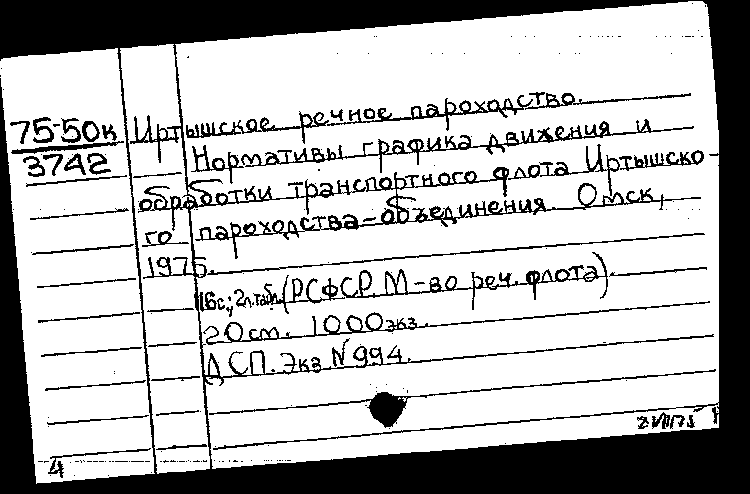 75-50к Иртышское речное пароходство.
3742 Нормативы графика движения и
обработки транспортного флота Иртышско-
го пароходства-объединения. Омск,
1975.
16с.; 2л.табл. (РСФСР. М-во реч. флота).
20см. 1000экз.
ДСП. Экз. №994.
4